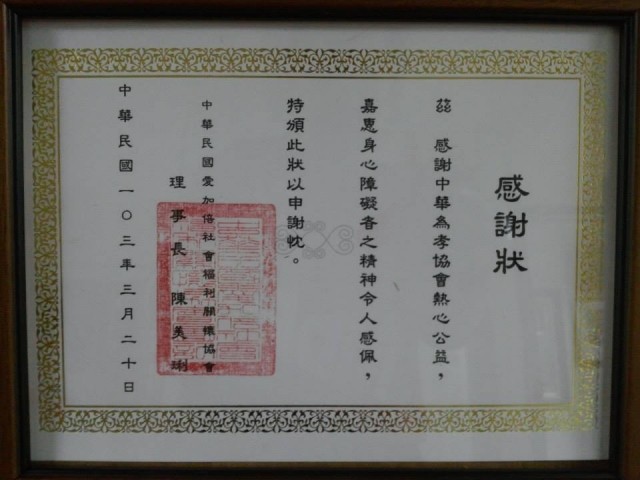 感謝狀
茲 感謝中華為孝協會熱心公益，
嘉惠身心障礙者之精神令人感佩，
特頒此狀以申謝忱。
中華民國愛加倍社會福利關懷協會
理事長 陳美琍
中華民國一０三年三月二十日